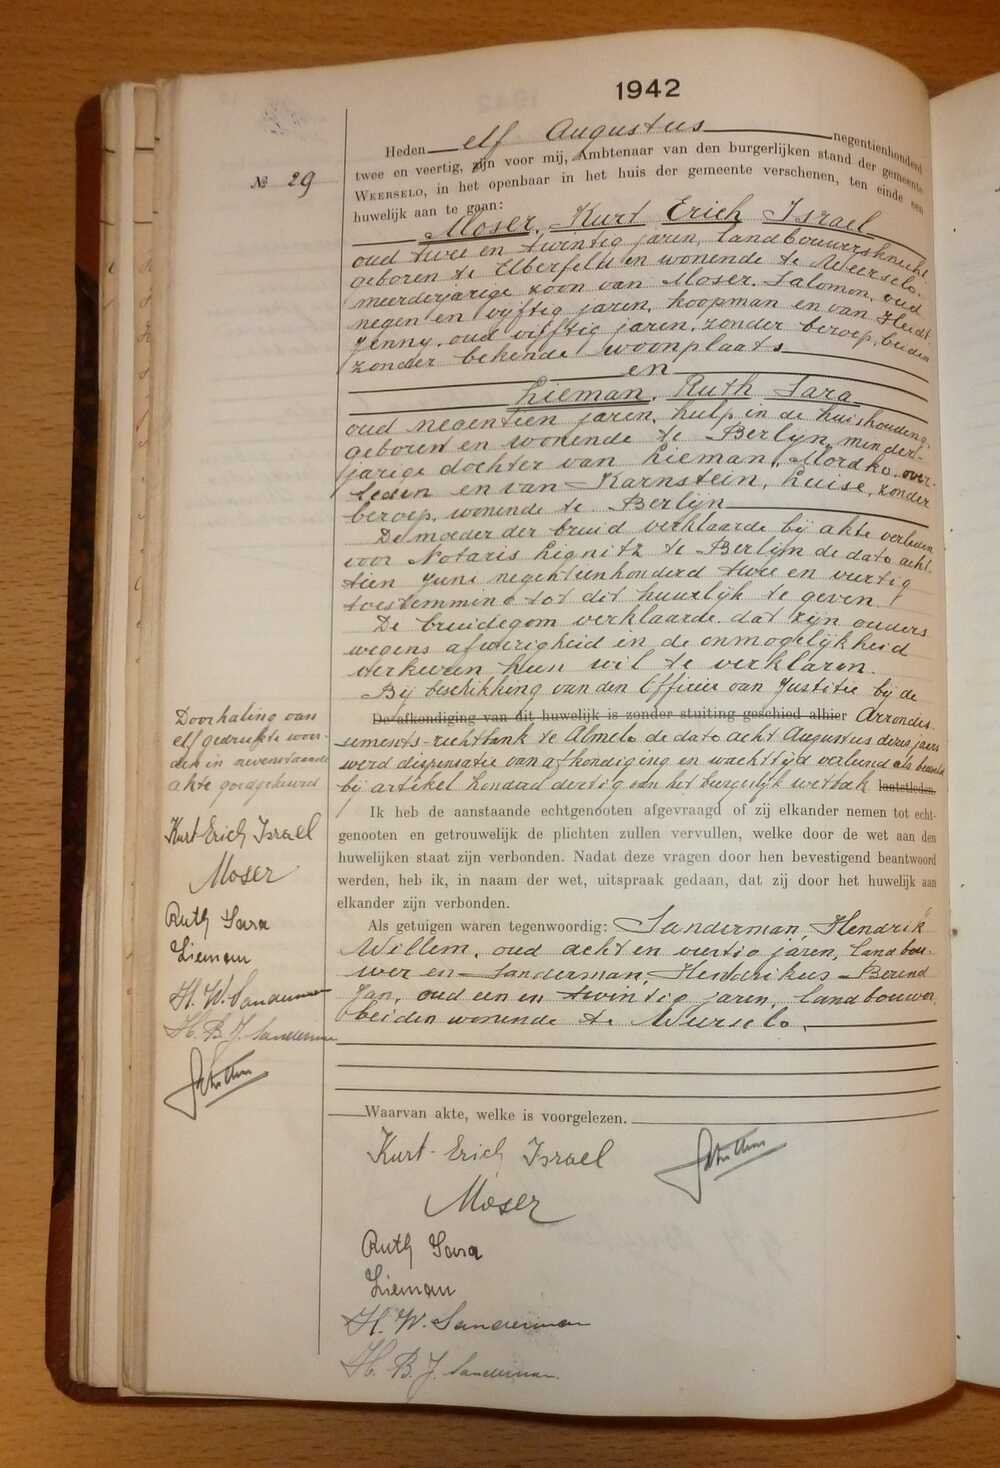 1942
№ 29
Heden elf Augustus negentienhonderd
twee en veertig, zijn voor mij, Ambtenaar van den burgerlijken stand der gemeente
WEERSELO, in het openbaar in het huis der gemeente verschenen, ten einde een
huwelijk aan te gaan:
Moser, Kurt Erich Israel
oud twee en twintig jaren, landbouwersknecht
geboren te Elberfeld en wonende te Weerselo,
meerderjarige zoon van Moser, Salomon, oud
negen en vijftig jaren, koopman en van Heidt
Jenny, oud vijftig jaren, zonder beroep, beiden
zonder bekende woonplaats
en
Lieman, Ruth Sara
oud negentien jaren, hulp in de huishouding,
geboren en wonende te Berlijn, minder-
jarige dochter van Lieman, Mordko, over-
leden en van Karnstein, Luise, zonder
beroep, wonende te Berlijn
De moeder der bruid verklaarde bij akte verleden
voor Notaris Lignitz te Berlijn de dato acht-
tien Juni negentienhonderd twee en veertig
toestemming tot dit huwelijk te geven.
De bruidegom verklaarde dat zijn ouders
wegens afwezigheid in de onmogelijkheid
verkeeren hun wil te verklaren.
Bij beschikking van den Officier van Justitie bij de
De afkondiging van dit huwelijk is zonder stuiting geschied alhier Arrondis-
sements-rechtbank te Almelo de dato acht Augustus dezes jaars
werd dispensatie van afkondiging en wachttijd verleend als bedoeld
bij artikel honderd dertig van het burgerlijk wetboek laatstleden.
Ik heb de aanstaande echtgenooten afgevraagd of zij elkander nemen tot echt-
genooten en getrouwelijk de plichten zullen vervullen, welke door de wet aan den
huwelijken staat zijn verbonden. Nadat deze vragen door hen bevestigend beantwoord
werden, heb ik, in naam der wet, uitspraak gedaan, dat zij door het huwelijk aan
elkander zijn verbonden.
Als getuigen waren tegenwoordig: Sanderman, Hendrik
Willem, oud acht en veertig jaren, landbou-
wer en Sanderman, Hendrikus Berend
Jan, oud een en twintig jaren, landbouwer
beiden wonende te Weerselo.
Waarvan akte, welke is voorgelezen.
Kurt-Erich Israel
Moser
Ruth Sara
Lieman
H. W. Sanderman
H. B. J. Sanderman
Doorhaling van
elf gedrukte woor-
den in nevenstaande
akte goedgekeurd
Kurt-Erich Israel
Moser
Ruth Sara
Lieman
H. W. Sanderman
H. B. J. Sanderman